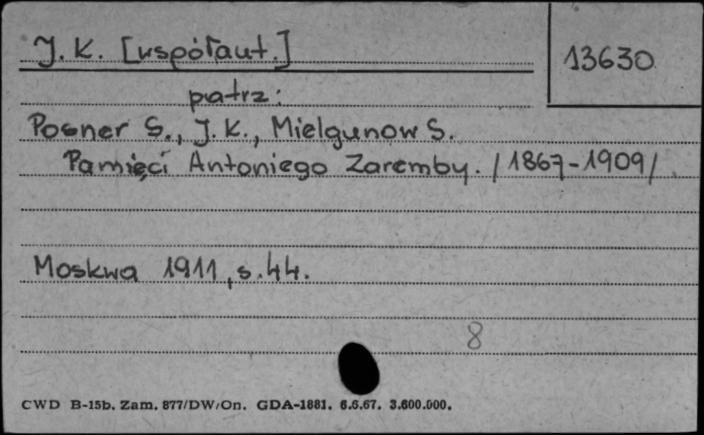 J. K. [współaut.]
13630
patrz:
Posner S., J. K., Mielgunow S.
Pamięci Antoniego Zaremby. /1867-1909/
Moskwa 1911, s. 44.
8
CWD B-15b. Zam. 877/DW/On. GDA-1881. 6.6.67. 3.600.000.